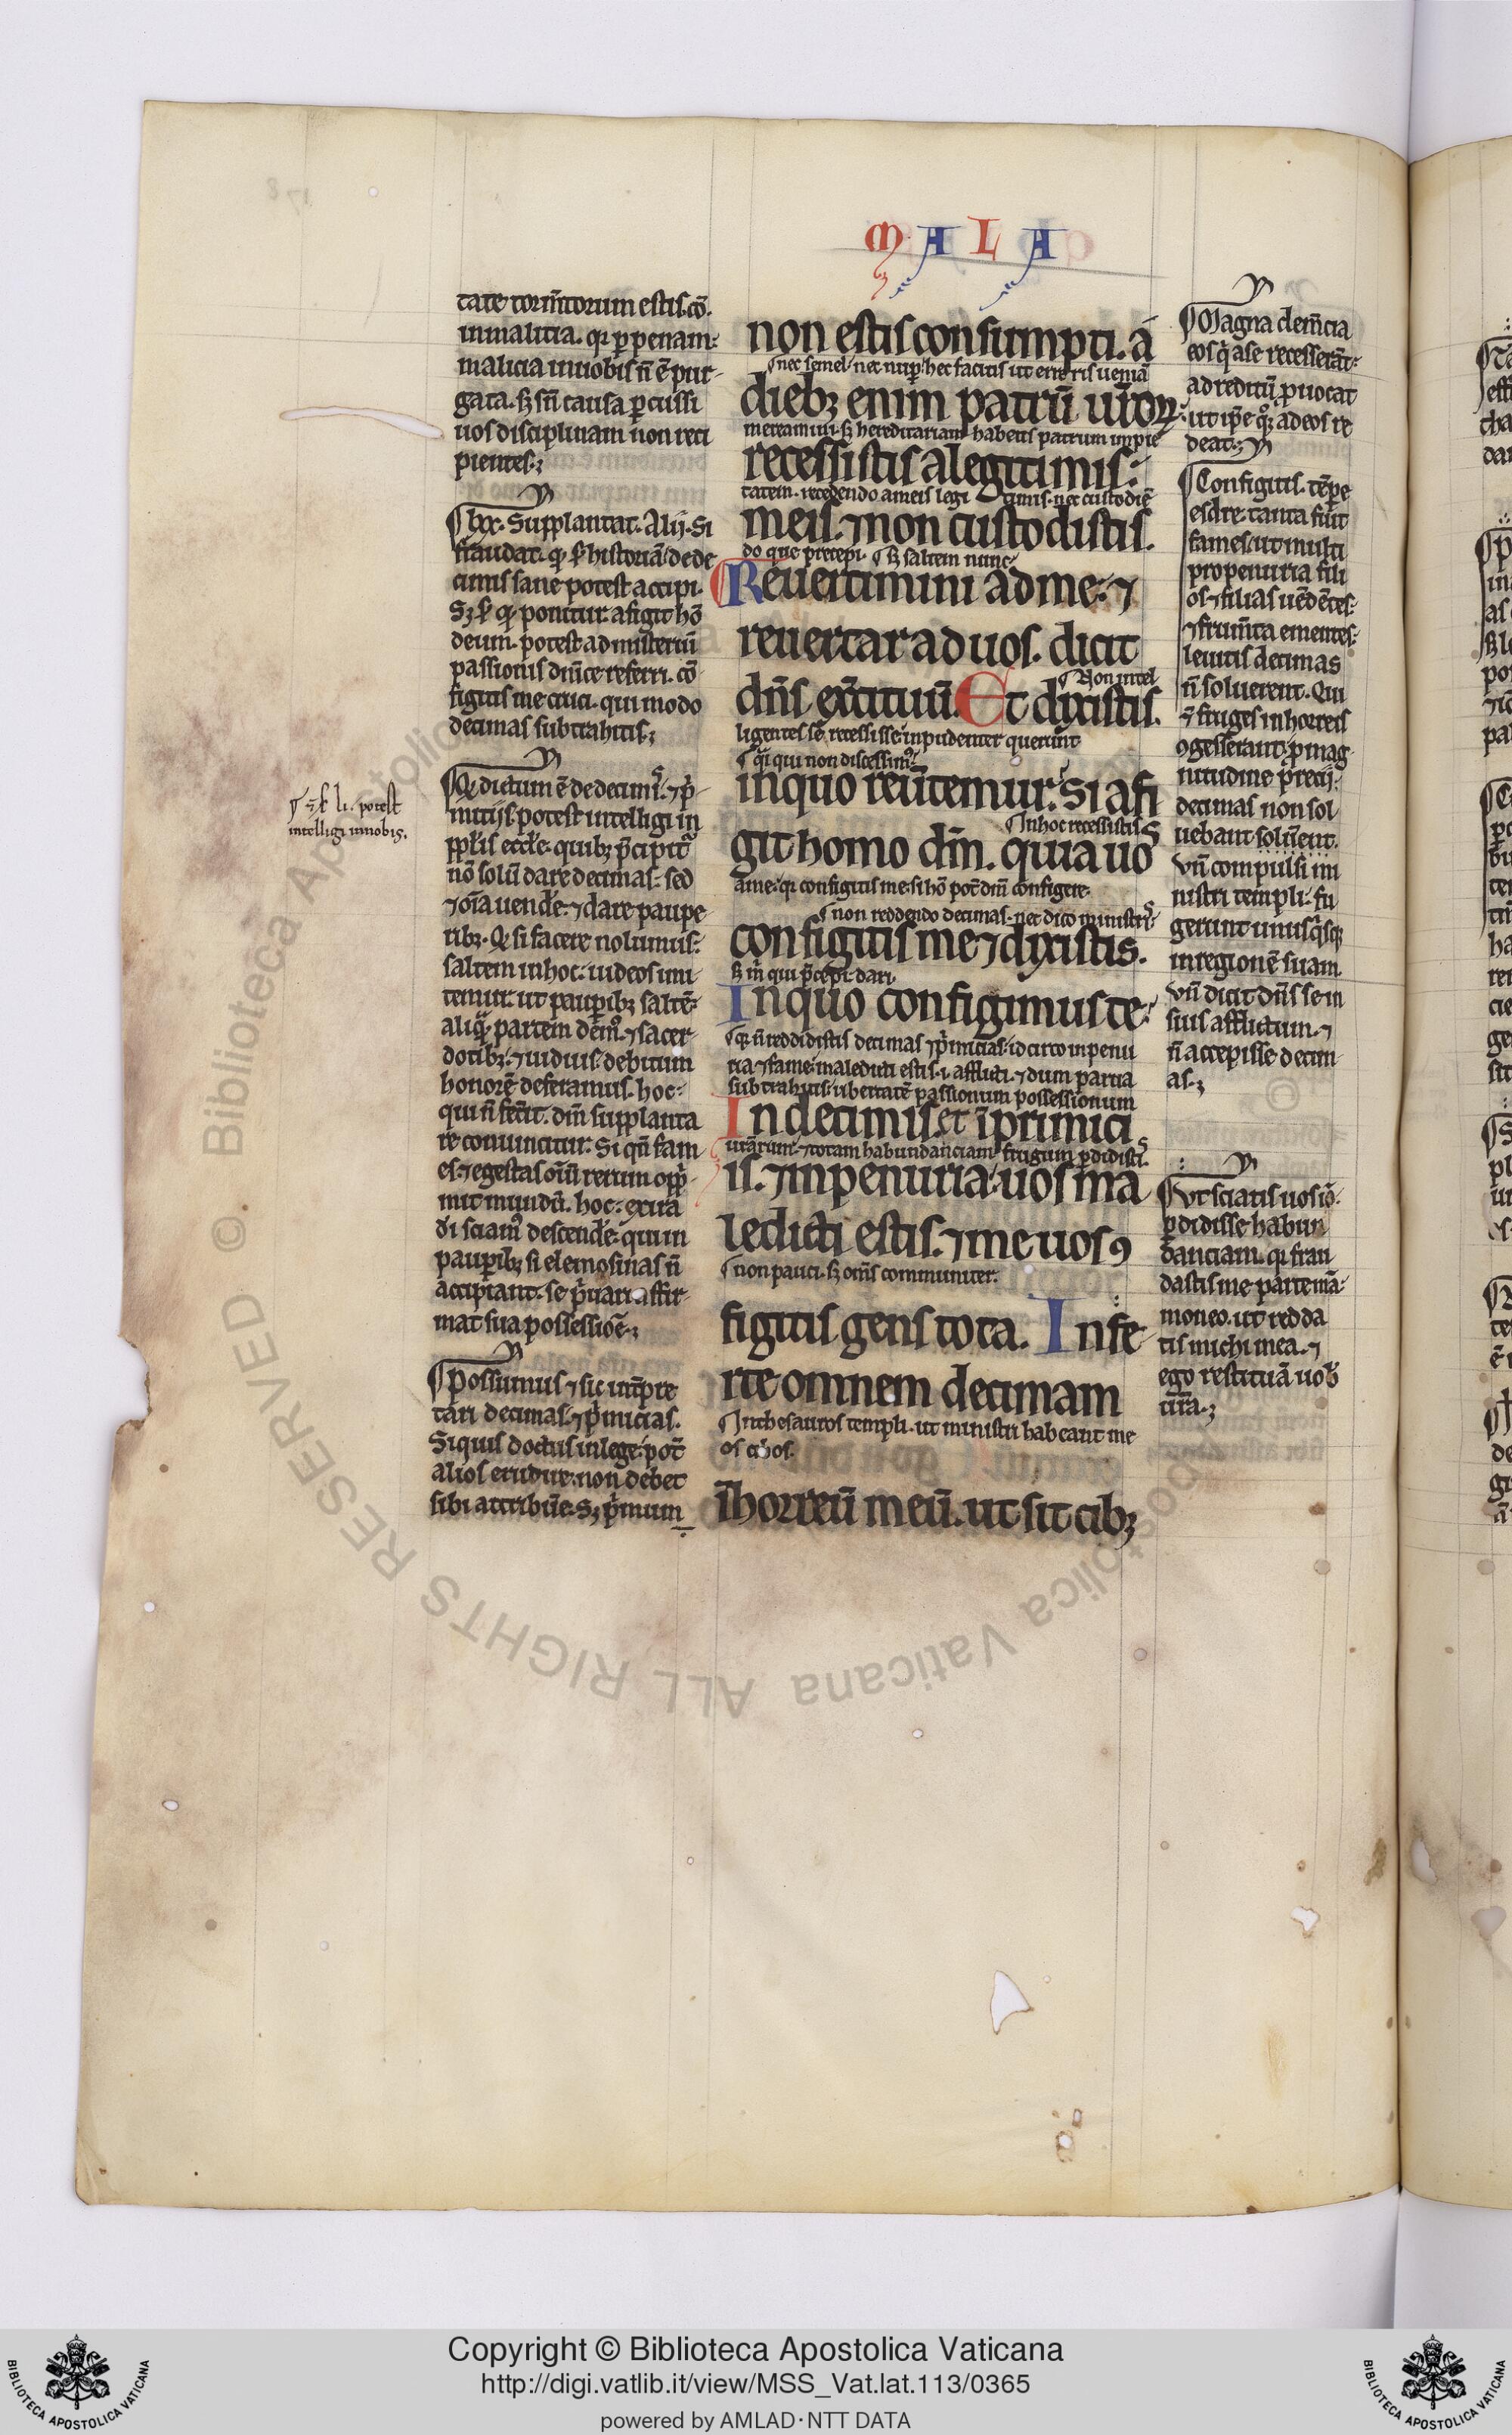 MALA
tate torm̄torum estis. cō.
in malitia. qr̄ p̱ penam:
malicia in uobis n̄ ē pur-
gata. sꝫ sn̄ causa p̱cussi
uos disciplinam non reci
pientes.;
¶lxx. Supplantat. Alij. Si
fraudat. qꝫ hystoriā de de
cimis sane potest accipi.
Sꝫ qꝫ ponitur. afigit hō
deum. potest ad misteriū
passionis dn̄ice referri. cō
figitis me cruci. qui modo
decimas subtrahitis.;
potest
intelligi in nobis.
¶Qd̄ dictum ē de decimis. ⁊ p̄-
mitijs. potest intelligi in
pp̄lis eccl̄e. quibꝫ p̄cipit̄
nō solū dare decimas. sed
⁊ oīa uend̄e. ⁊ dare paupe
ribꝫ. Qd̄ si facere nolumus:
saltem in hoc. iudeos imi-
temur. ut paup̱ibꝫ saltē
aliquā partem dem⁹. ⁊ sacer-
dotibꝫ. ⁊ uiduis. debitum
honorē deferamus. hoc:
qui n̄ fecit. dn̄m supplanta
re conuincitur. Si qn̄ fam-
es. ⁊ egestas oīum rerum opp̄-
mit mundū. hoc: ex ira
di sciam⁹ descend̄e. qui in
paup̱ibꝫ si elemosinas n̄
accipiant. se p̄uari affir-
mat sua possessiōe.;
¶Possumus ⁊ sic int̄pre
tari decimas. ⁊ p̄micias.
Si quis doctus in lege. pōt
alios erudire. non debet
sibi attribūe. Sꝫ p̄mum
non estis consumpti. A
¶nec semel. nec nup̱. hec facitis ut erroris ueniā
diebꝫ enim patrū ur̄oꝝ
mereamini. sꝫ hereditariam habetis patrum impie
recessistis a legitimis
tatem. recedendo a meis legitimis. nec custodiē
meis. ⁊ non custodistis.
do que precepi. ¶Sꝫ saltem nunc
Reuertimini ad me. ⁊
reuertar ad uos. dicit
¶Non intel
dn̄s exc̄ituū. Et dixistis.
ligentes se recessisse inpudenter querunt
¶q̄i qui non discessim⁹.
in quo reūtemur. Si afi
¶In hoc recessistis
git homo dm̄. quia uo
a me. qr̄ configitis me. si hō pōt dm̄ configere.
¶non reddendo decimas. nec dico ministris.
configitis me. ⁊ dixistis.
sꝫ m̄ qui p̄cepi dari.
In quo configimus te.
¶qr̄ n̄ reddidistis decimas ⁊ p̄micias. idcirco in penu
ria ⁊ fame maledicti estis. i. afflicti. ⁊ dum parua
subtrahitis. ubertatē passionum possessionum
In decimis. et ī primici
ur̄arum. ⁊ totam habundanciam frugum p̱didistis.
is. ⁊ in penuria. uos ma
ledicti estis. ⁊ me uos ꝯ
¶non pauci. sꝫ om̄s communiter.
figitis gens tota. Infe
rte omnem decimam
¶In thesauros templi. ut ministri habeant me
os cibos.
ī horreū meū. ut sit cibꝫ
¶Magna clem̄cia
eos q̄ a se recesserāt.
ad reditū p̱uocat
ut ip̄e quoqꝫ ad eos re
deat.;
¶Configitis. tēpe
esdre. tanta fuit
fames. ut multi
pro penuria fili
os ⁊ filias uēdētes.
⁊ frum̄ta ementes.
leuitis decimas
n̄ soluerent. Qui
⁊ fruges in horreis
ꝯgesserant. p̱ mag
nitudine precij.
decimas non sol
uebant soluerent.
Vn̄ compulsi mi
nistri templi. fu
gerunt unusq̄sqꝫ
in regionē suam.
Vn̄ dicit dn̄s se in
suis afflictum. ⁊
n̄ accepisse decim
as.;
¶Vt sciatis uos iō
p̱didisse habun
danciam. qr̄ frau
dastis me parte mā.
moneo. ut redda
tis michi mea. ⁊
ego restituā uob̄
ur̄a.;
Biblioteca Apostolica Vaticana ALL RIGHTS RESERVED ©
Copyright © Biblioteca Apostolica Vaticana
http://digi.vatlib.it/view/MSS_Vat.lat.113/0365
powered by AMLAD·NTT DATA
BIBLIOTECA APOSTOLICA VATICANA
BIBLIOTECA APOSTOLICA VATICANA